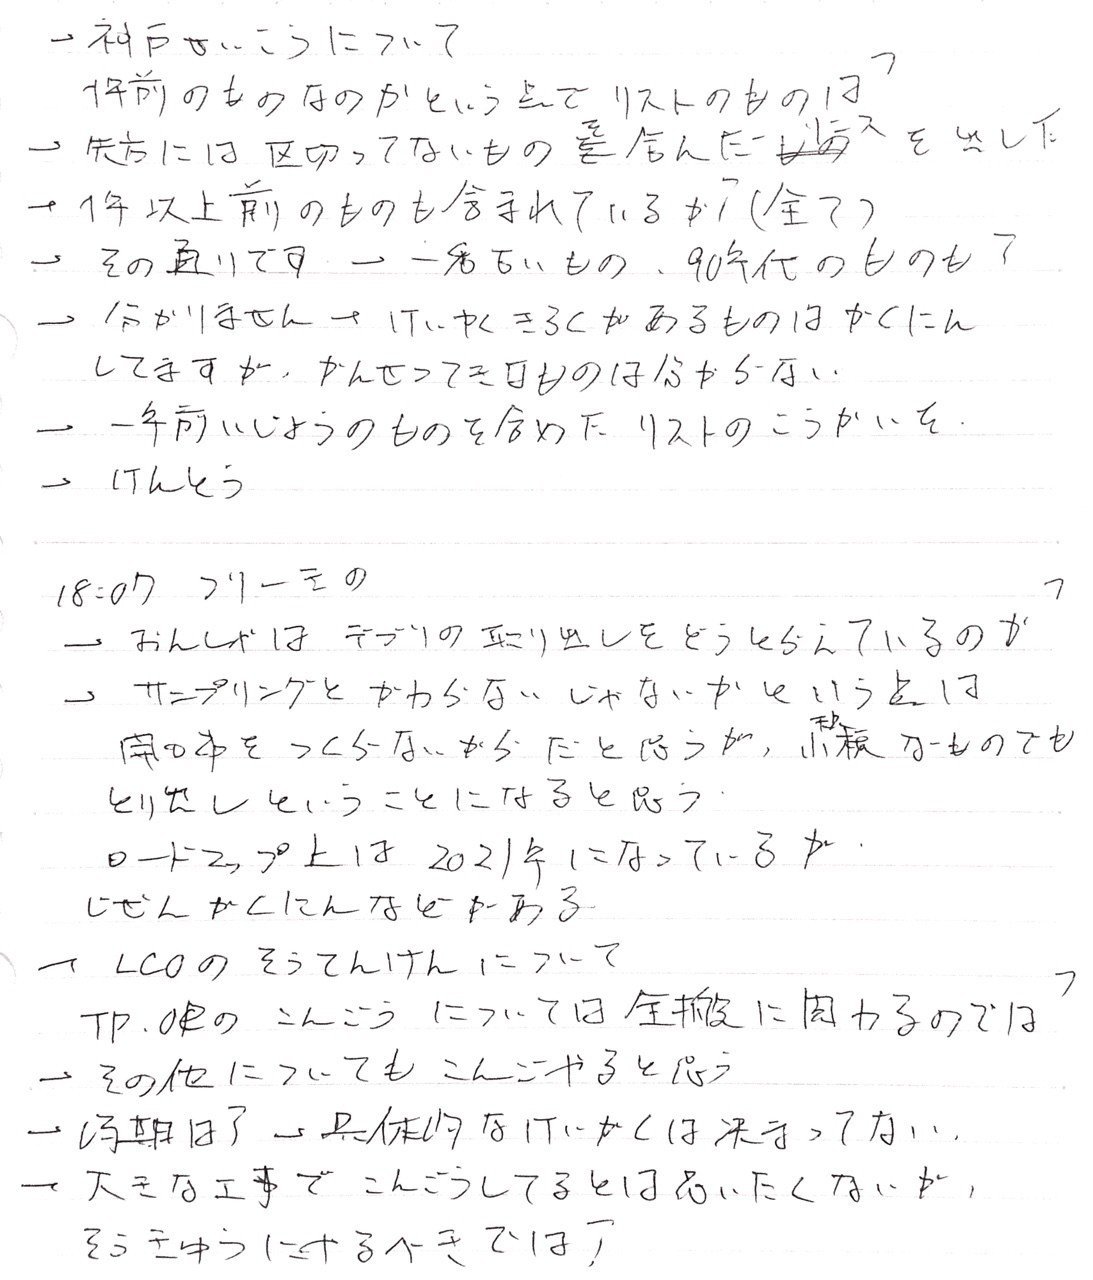 → 神戸せいこうについて
1年前のものなのかという点で リストのものは?
→ 先方には 区切ってないものを含んだリスト を出した
→ 1年以上前のものも含まれているか?(全て)
→ その通りです → 一番古いもの、90年代のものも?
→ 分かりません → けいやくきろくがあるものはかくにん
してますが、かんせつてきなものは分からない
→ 一年前いじょうのものを含めた リストのこうかいを
→ けんとう
18:07 フリーその
→ おんしゃは デブリの取り出しをどうとらえているのか?
→ サンプリングと かわらないじゃないかという点は
開口部をつくらないからだと思うが、小規模なものでも
とり出しということになると思う
ロードマップ上は 2021年になっているが
じぜんかくにんなどがある
→ LCOのそうてんけんについて
TP.O.Pの こんごうについては全般に関わるのでは?
→ その他についてもこんごやると思う
→ 時期は? → 具体的なけいかくは決まってない、
→ 大きな工事で こんごうしてるとは思いたくないが、
そうきゅうにするべきでは?